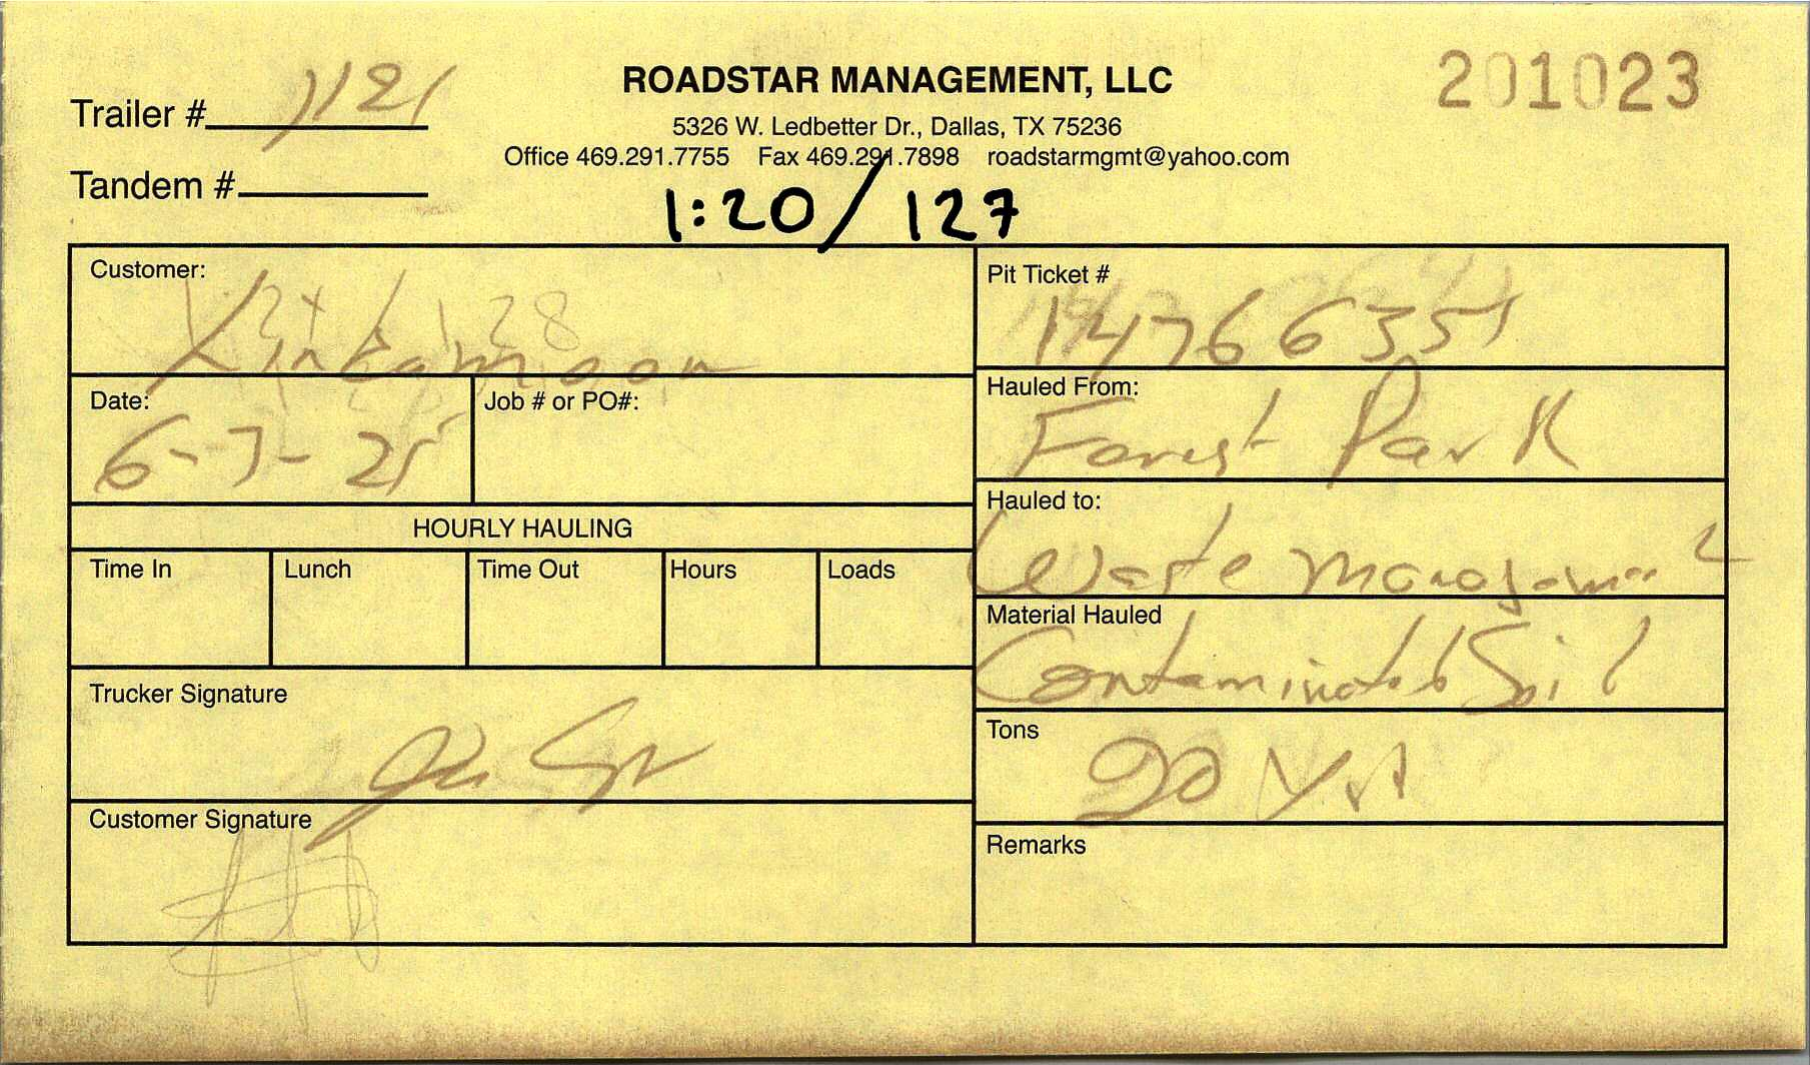 Trailer # 1121
ROADSTAR MANAGEMENT, LLC
201023
5326 W. Ledbetter Dr., Dallas, TX 75236
Office 469.291.7755 Fax 469.291.7898 roadstarmgmt@yahoo.com
Tandem #
1:20/127
Customer:
Pit Ticket #
14766355
Date:
6-3-25
Job # or PO#:
Hauled From:
Forest Park
HOURLY HAULING
Hauled to:
Waste
Time In
Lunch
Time Out
Hours
Loads
Material Hauled
Contaminated Soil
Trucker Signature
Tons
20 Yd
Customer Signature
Remarks